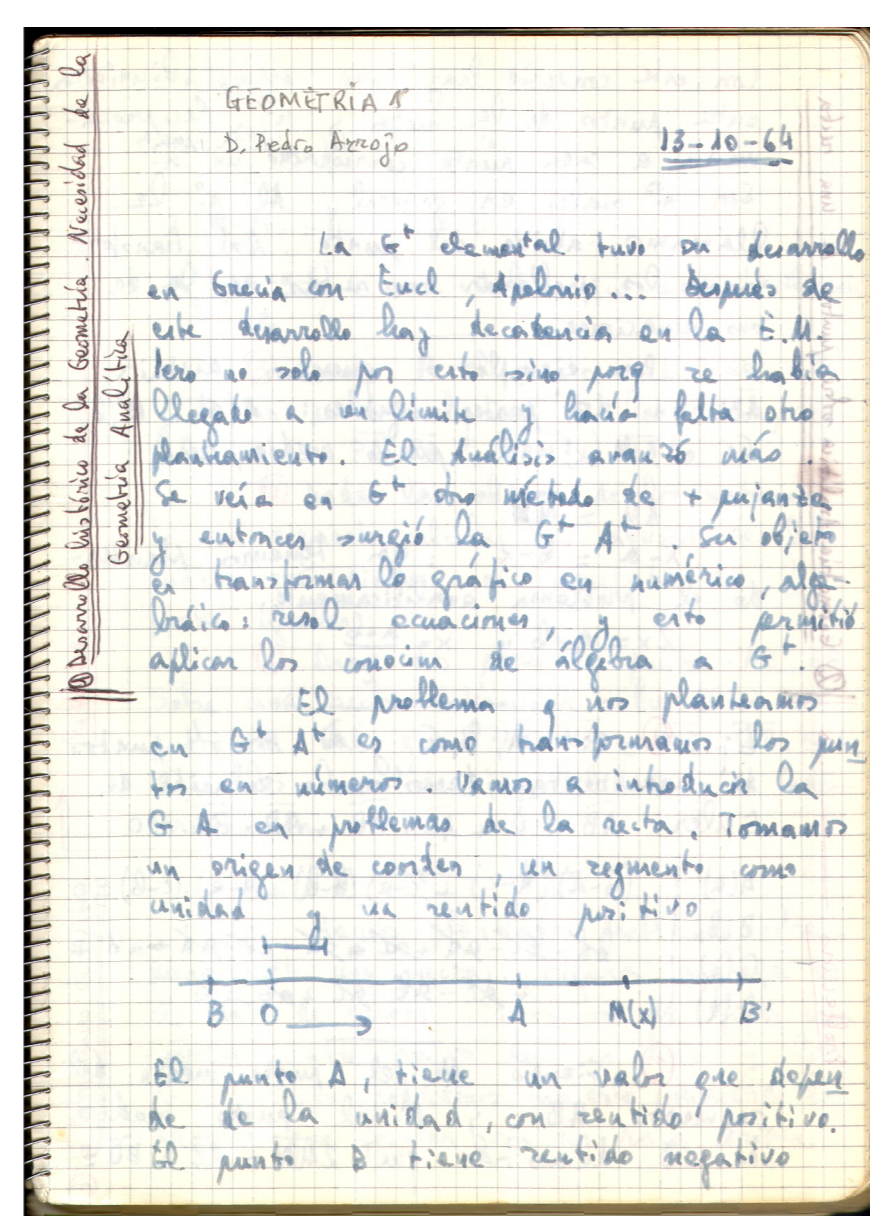 ① Desarrollo histórico de la Geometría. Necesidad de la
Geometría Analítica
GEOMETRÍA 1º
D. Pedro Arrojo
13-10-64
La Gᵗ elemental tuvo su desarrollo
en Grecia con Eucl, Apolonio... Después de
este desarrollo hay decadencia en la E.M.
Pero no solo por esto sino porq se había
llegado a un límite y hacía falta otro
planteamiento. El Análisis avanzó más.
Se veía en Gᵗ otro método de + pujanza,
y entonces surgió la Gᵗ Aᵗ. Su objeto
es transformar lo gráfico en numérico, alge-
bráico: resol ecuaciones, y esto permitió
aplicar los conocim de álgebra a Gᵗ.
El problema q nos planteamos
en Gᵗ Aᵗ es como transformamos los pun
tos en números. Vamos a introducir la
G A en problemas de la recta. Tomamos
un origen de coorden, un segmento como
unidad y un sentido positivo
B O A M(x) B'
El punto A, tiene un valor que depen
de de la unidad, con sentido positivo.
El punto B tiene sentido negativo